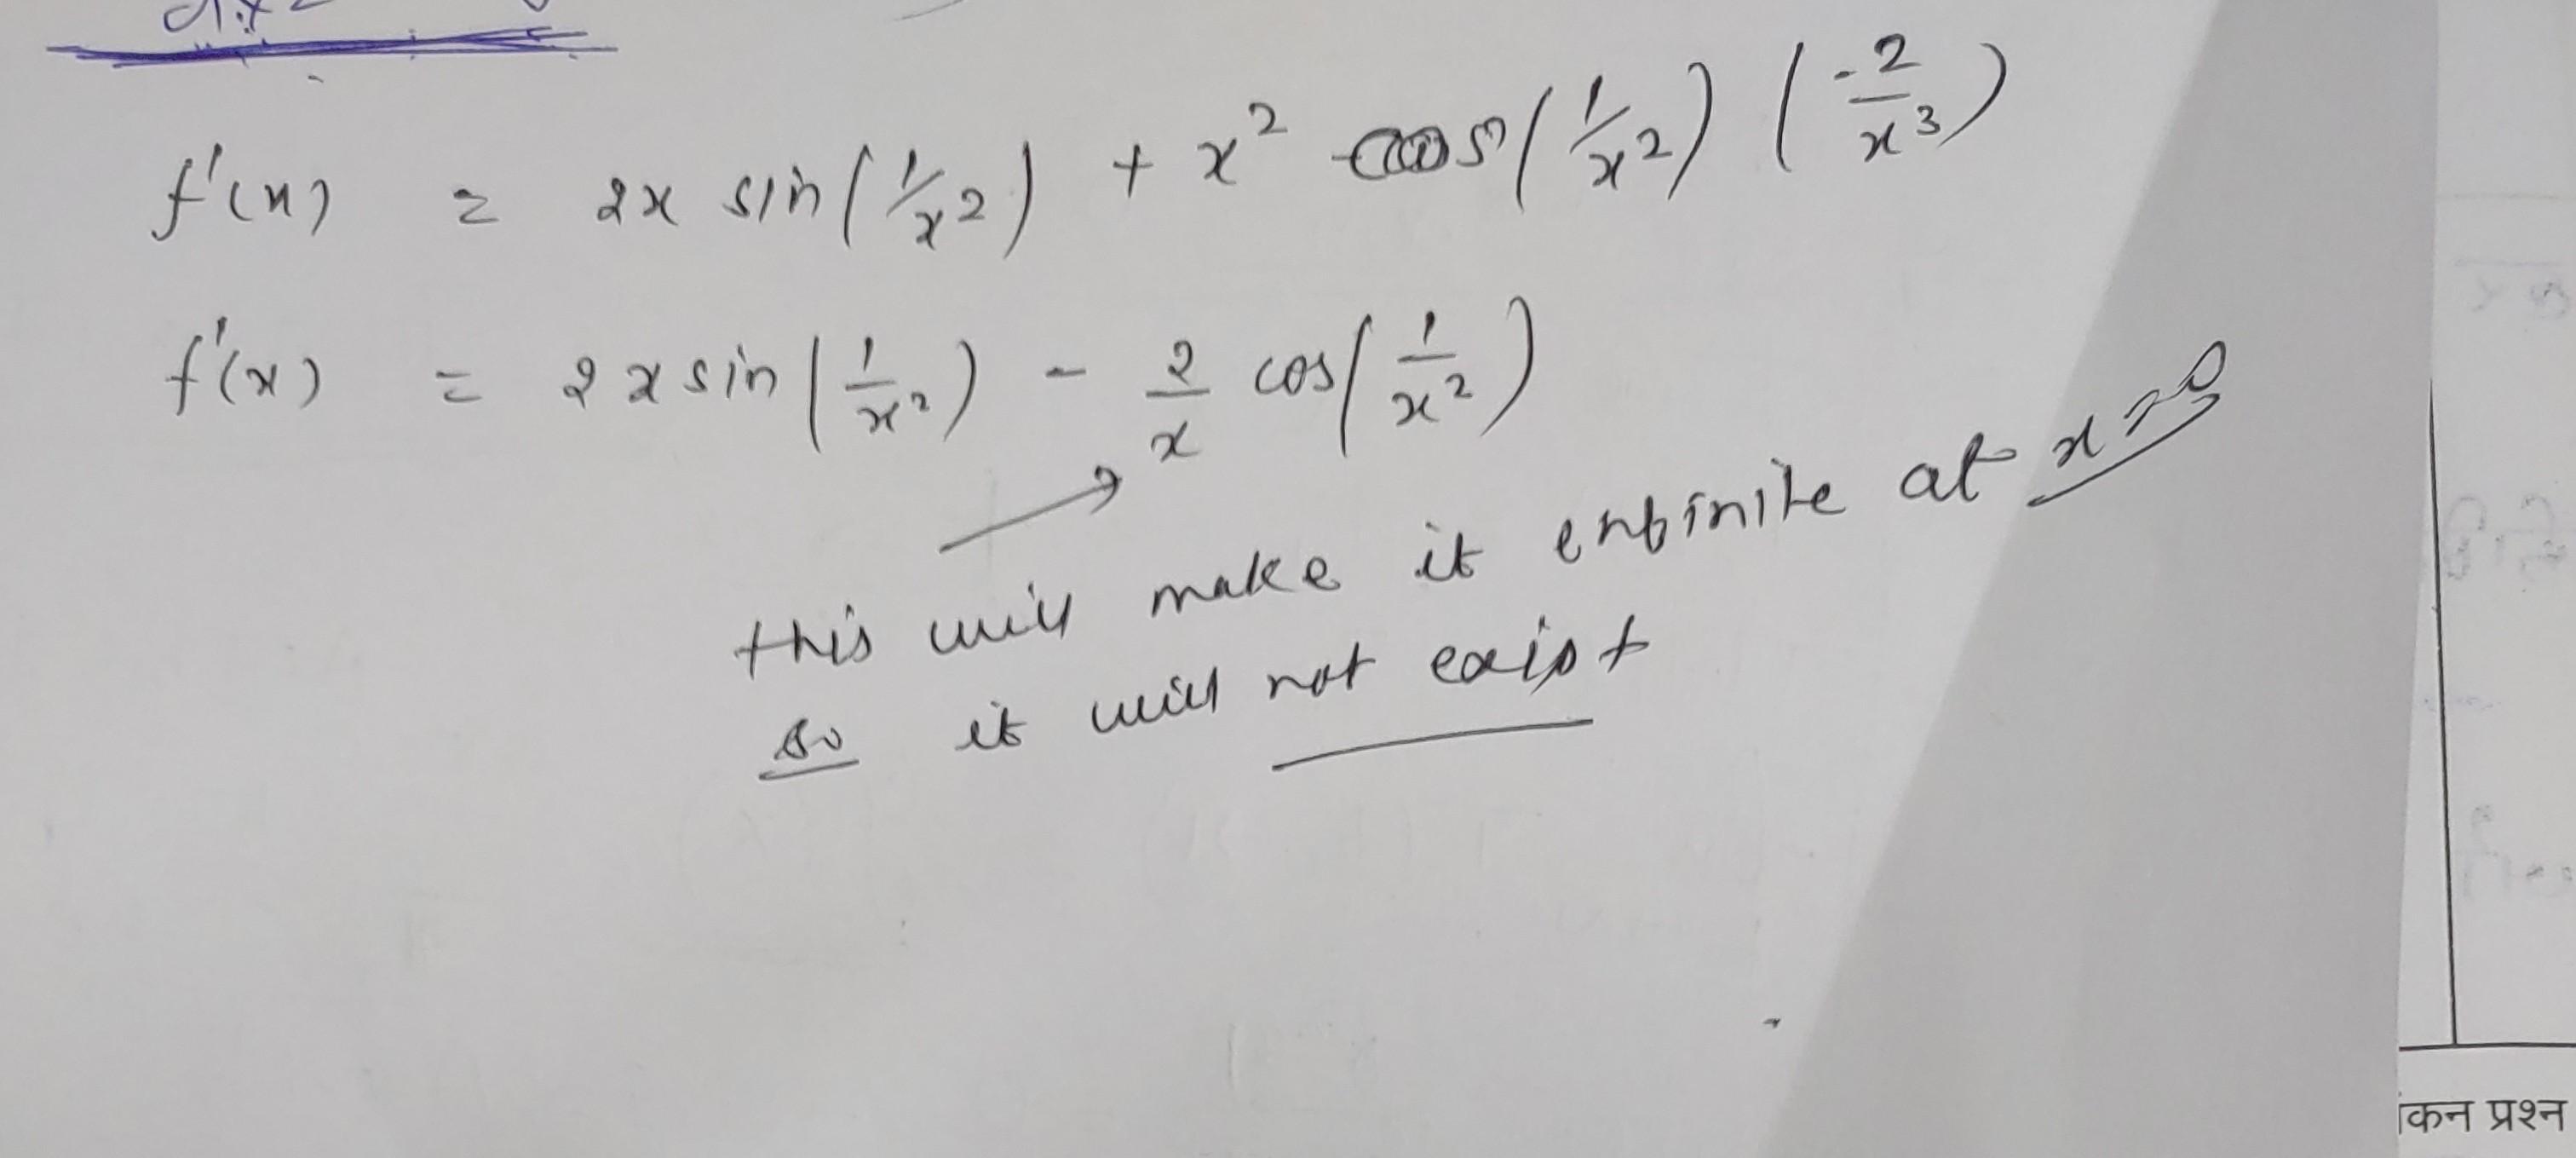 f'(x) = 2x sin(1/x²) + x² cos(1/x²) (-2/x³)
f'(x) = 2x sin(1/x²) - 2/x cos(1/x²)
this will make it enfinite at x=0
so it will not exist
कन प्रश्न